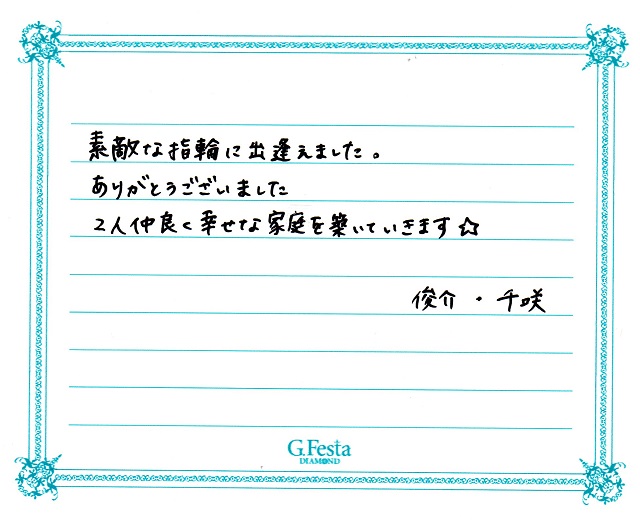 素敵な指輪に出逢えました。
ありがとうございました
2人仲良く幸せな家庭を築いていきます☆
俊介・千咲
G.Festa
DIAMOND